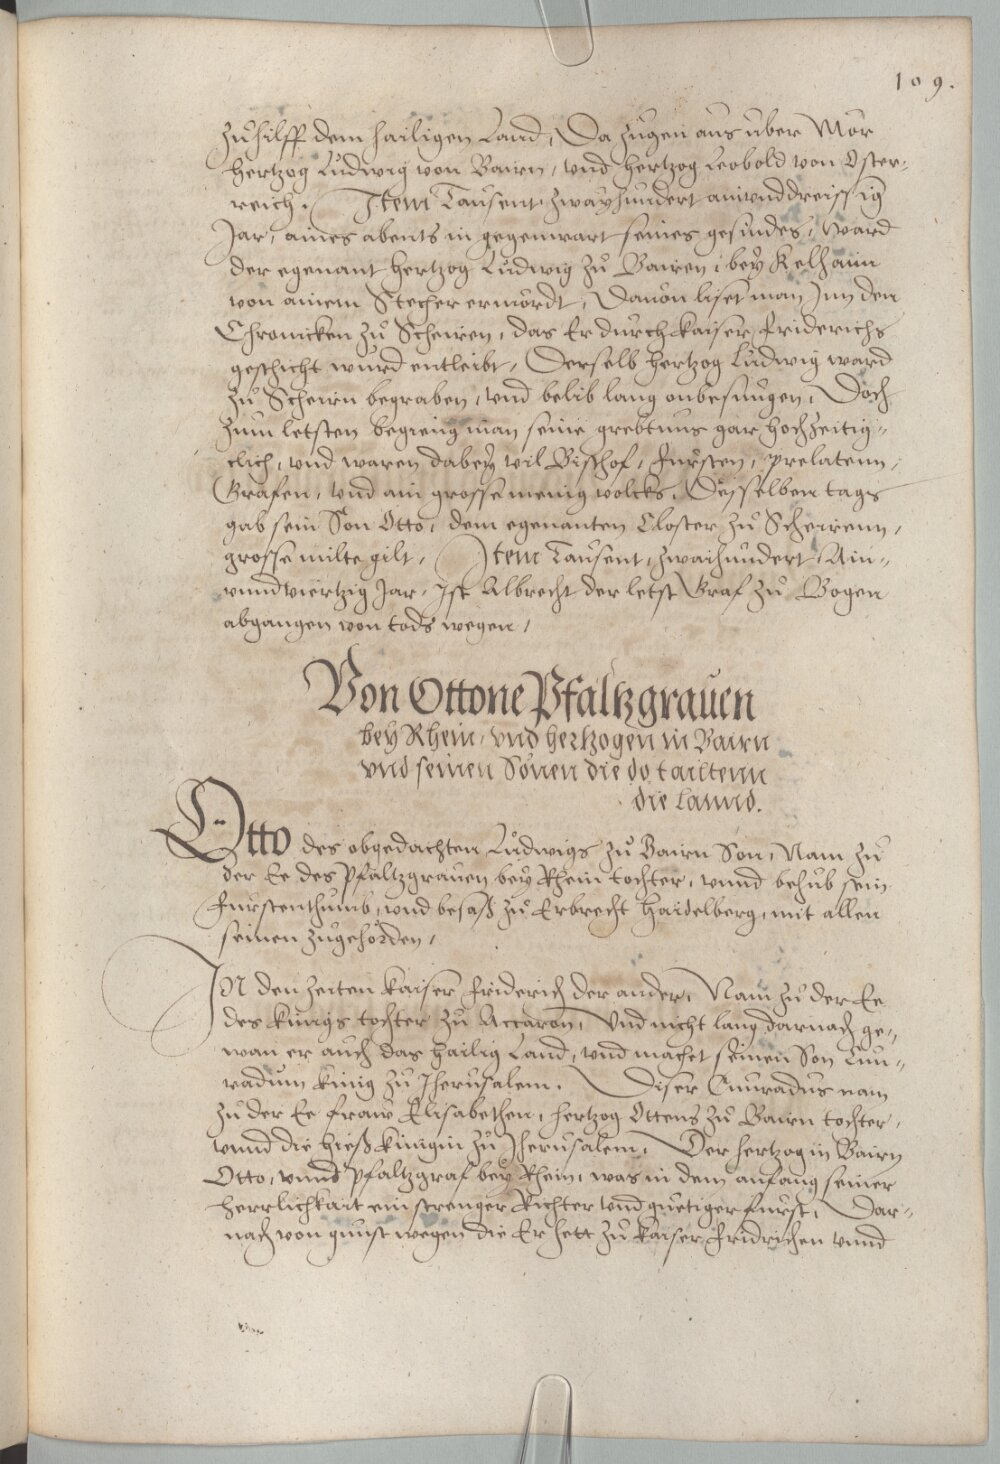 109.
zuhilff dem hailigen Land, Da zugen aus uber Mör
hertzog Ludwig von Bairn, vnd hertzog Leobold von Oster-
reich. Item Tausent zwayhundert ainvnddreissig
Jar, aines abents in gegenwart seines gesindes, Ward
der egenant hertzog Ludwig zu Bairen, bey Kelhaim
von ainem Stecher ermördt, Dauon liset man Inn den
Chronicken zu Scheiren, das Er durch kaiser Friderichs
geschicht wurd entleibt, Derselb hertzog Ludwig ward
zu Scheirn begraben, vnd belib lang onbesungen, Doch
zum letsten begieng man seine grebtnus gar hochzeitig-
clich, vnd waren dabey vil Bischof, fursten, prelatenn,
Grafen, vnd ain grosse menig volcks, Desselben tags
gab sein Son Otto, dem egenanten Closter zu Scheirenn,
grosse milte gilt, Item Tausent, zwaihundert, Ain-
vnnd viertzig Jar, Ist Albrecht der letst Graf zu Bogen
abgangen von tods wegen,
Von Ottone Pfaltzgrauen
bey Rhein, vnd hertzogen in Bairn
vnd seinen Sönen die do tailtenn
die lannd.
Otto des obgedachten Ludwigs zu Bairn Son, Nam zu
der Ee des Pfaltzgrauen bey Rhein tochter, vnnd behub sein
Furstenthumb, vnd besaß zu Erbrecht Haidelberg, mit allen
seinen zugehörden,
IN den zeiten kaiser Friderich der ander, Nam zu der Ee
des kunigs tochter zu Accaron, Vnd nicht lang darnach ge-
wan er auch das hailig Land, vnd machet seinen Son Cun-
radum kunig zu Jherusalem. Diser Cunradus nam
zu der Ee fraw Elisabethen, hertzog Ottens zu Bairn tochter,
vnnd die hieß kunigin zu Jherusalem, Der hertzog in Bairn
Otto, vnnd Pfaltzgraf bey Rhein, was in dem anfang seiner
herrlichkait ein strenger Richter vnd guetiger furst, Dar-
nach von gunst wegen die Er hett zu kaiser Fridrichen vnnd